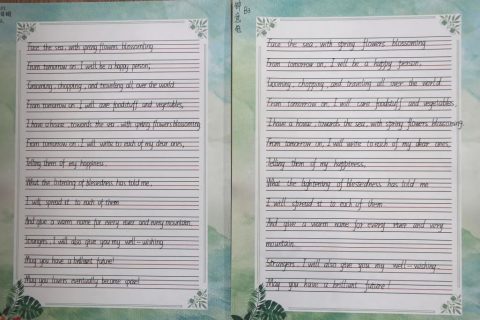 Face the sea, with spring flowers blossoming
From tomorrow on, I will be a happy person,
Grooming, chopping, and traveling all over the world
From tomorrow on, I will care foodstuff and vegetables,
I have a house, towards the sea, with spring flowers blossoming
From tomorrow on, I will write to each of my dear ones,
Telling them of my happiness,
What the listening of blessedness has told me,
I will spread it to each of them
And give a warm name for every river and every mountain,
Strangers, I will also give you my well-wishing
May you have a brilliant future!
May you lovers eventually become spouse!
Ba
Face the sea, with spring flowers blossoming
From tomorrow on, I will be a happy person,
Grooming, chopping, and traveling all over the world
From tomorrow on, I will care foodstuff and vegetables,
I have a house, towards the sea, with spring flowers blossoming.
From tomorrow on, I will write to each of my dear ones.
Telling them of my happiness,
What the lightening of blessedness has told me
I will spread it to each of them
And give a warm name for every river and very
mountain.
Strangers, I will also give you my well-wishing.
May you have a brilliant future!